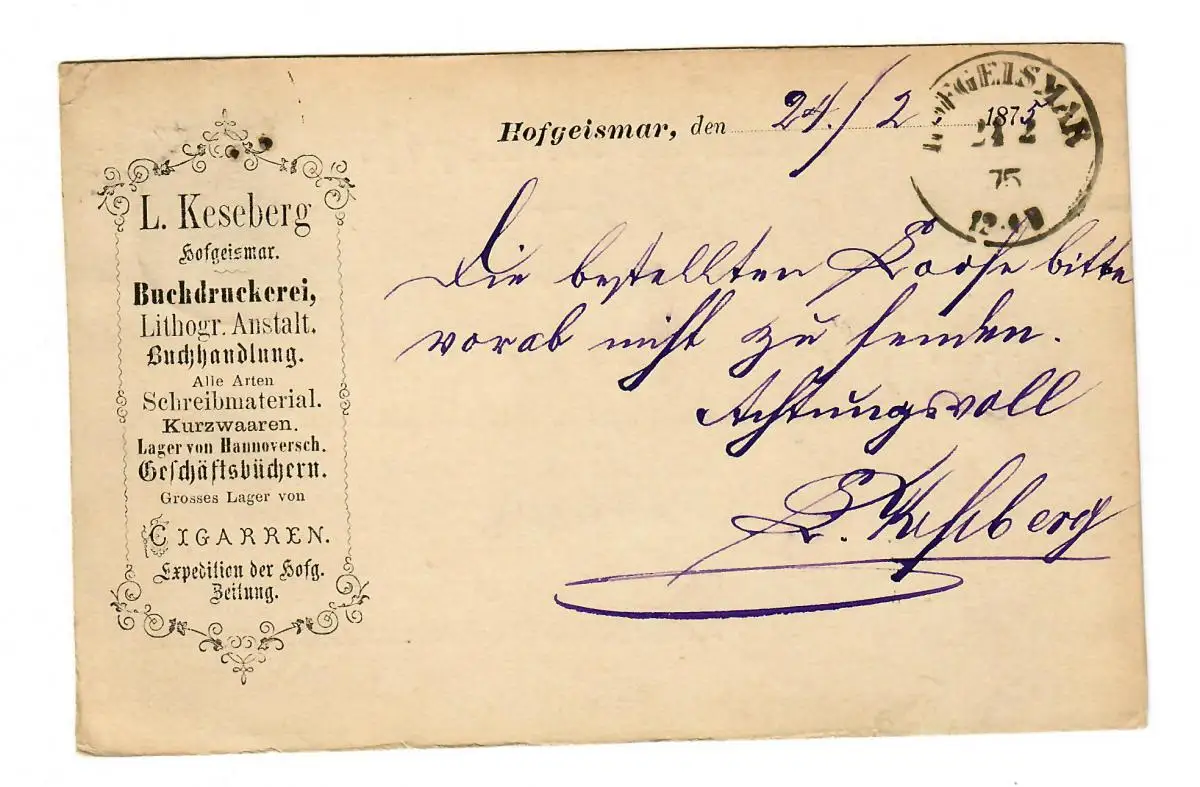 L. Keseberg
Hofgeismar.
Buchdruckerei,
Lithogr. Anstalt.
Buchhandlung.
Alle Arten
Schreibmaterial.
Kurzwaaren.
Lager von Hannoversch.
Geschäftsbüchern.
Grosses Lager von
CIGARREN.
Expedition der Hofg.
Zeitung.
Hofgeismar, den 24./2 1875
HOFGEISMAR
24 2
75
Die bestellten Loose bitte
vorab nicht zu senden.
Achtungsvoll
L. Keseberg